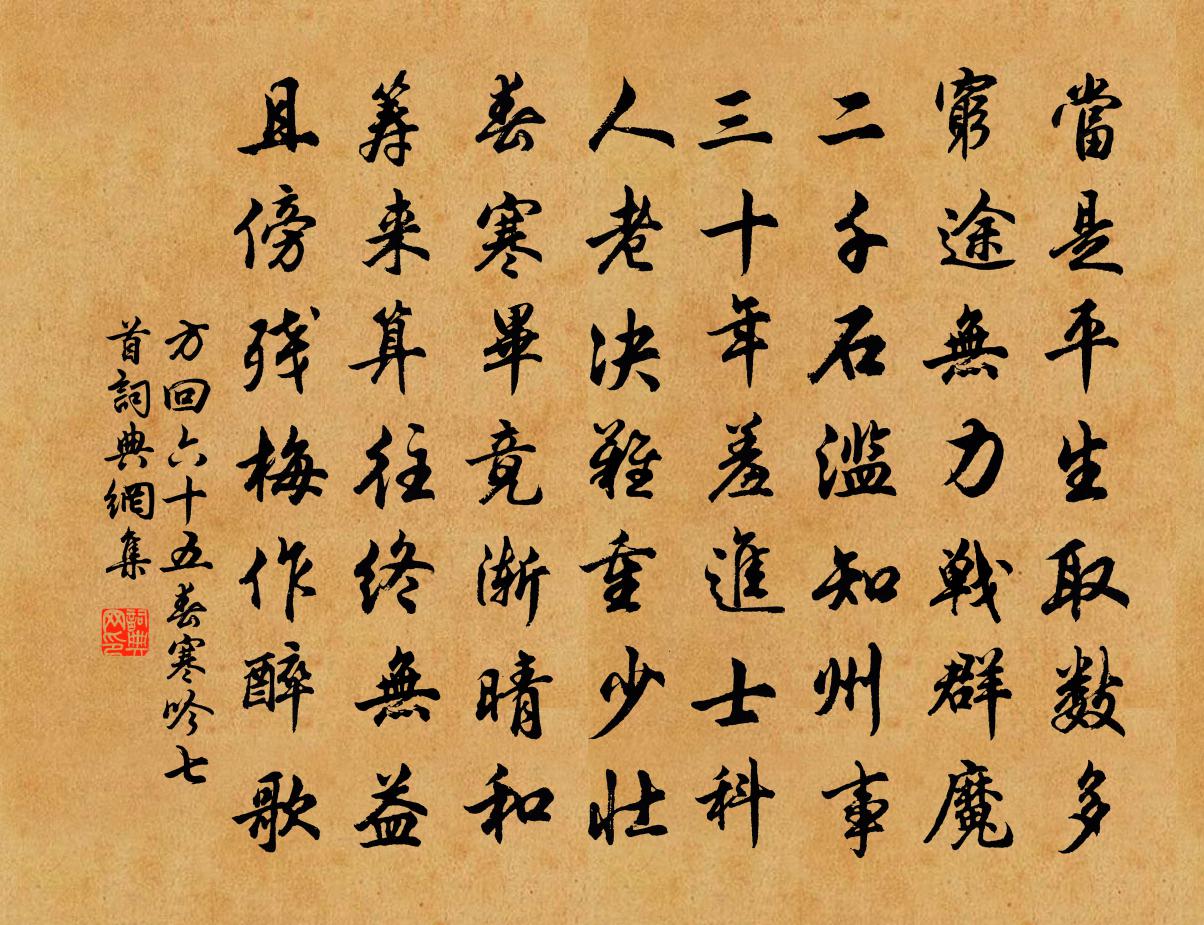 當是平生取数多
窮途無力戦群魔
二千石濫知州事
三十年羞進士科
人老决難重少壮
春寒畢竟漸晴和
筹来算往終無益
且傍残梅作醉歌
方回六十五春寒吟七
首詞典網集
詞典
网印